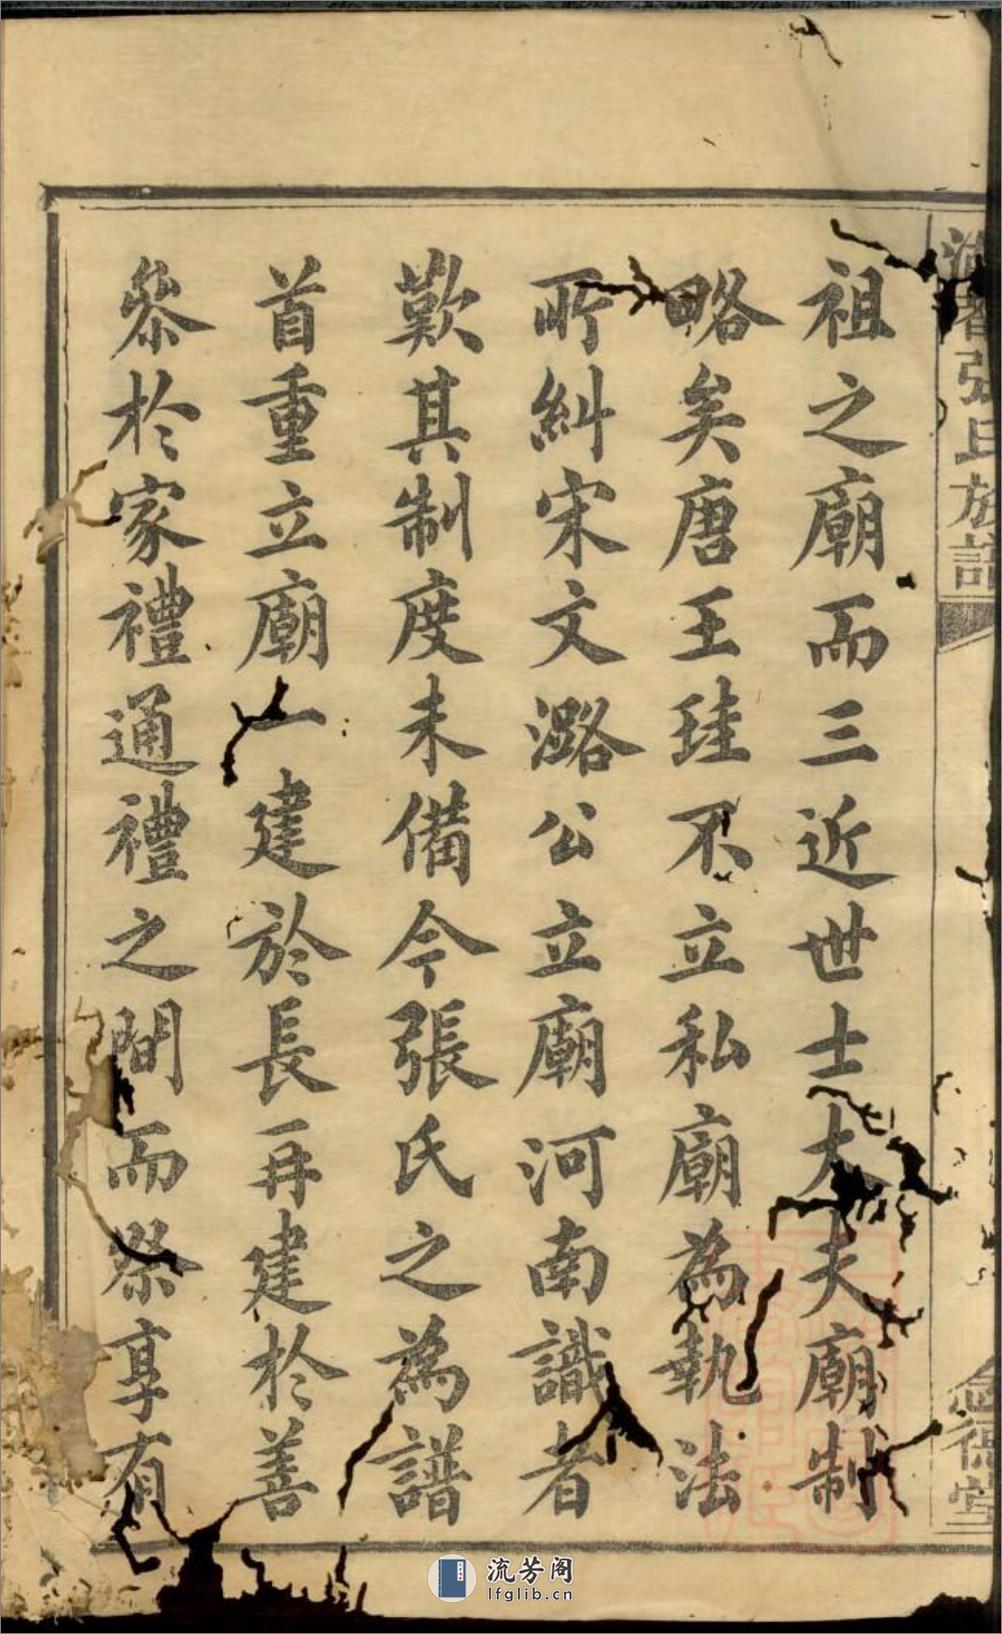 張氏族譜
德堂
祖之廟而三近世士大夫廟制
略矣唐王珪不立私廟為執法
所糾宋文潞公立廟河南識者
歎其制度未備今張氏之為譜
首重立廟一建於長再建於善
叅於家禮通禮之間而祭享有
流芳阁
lfglib.cn